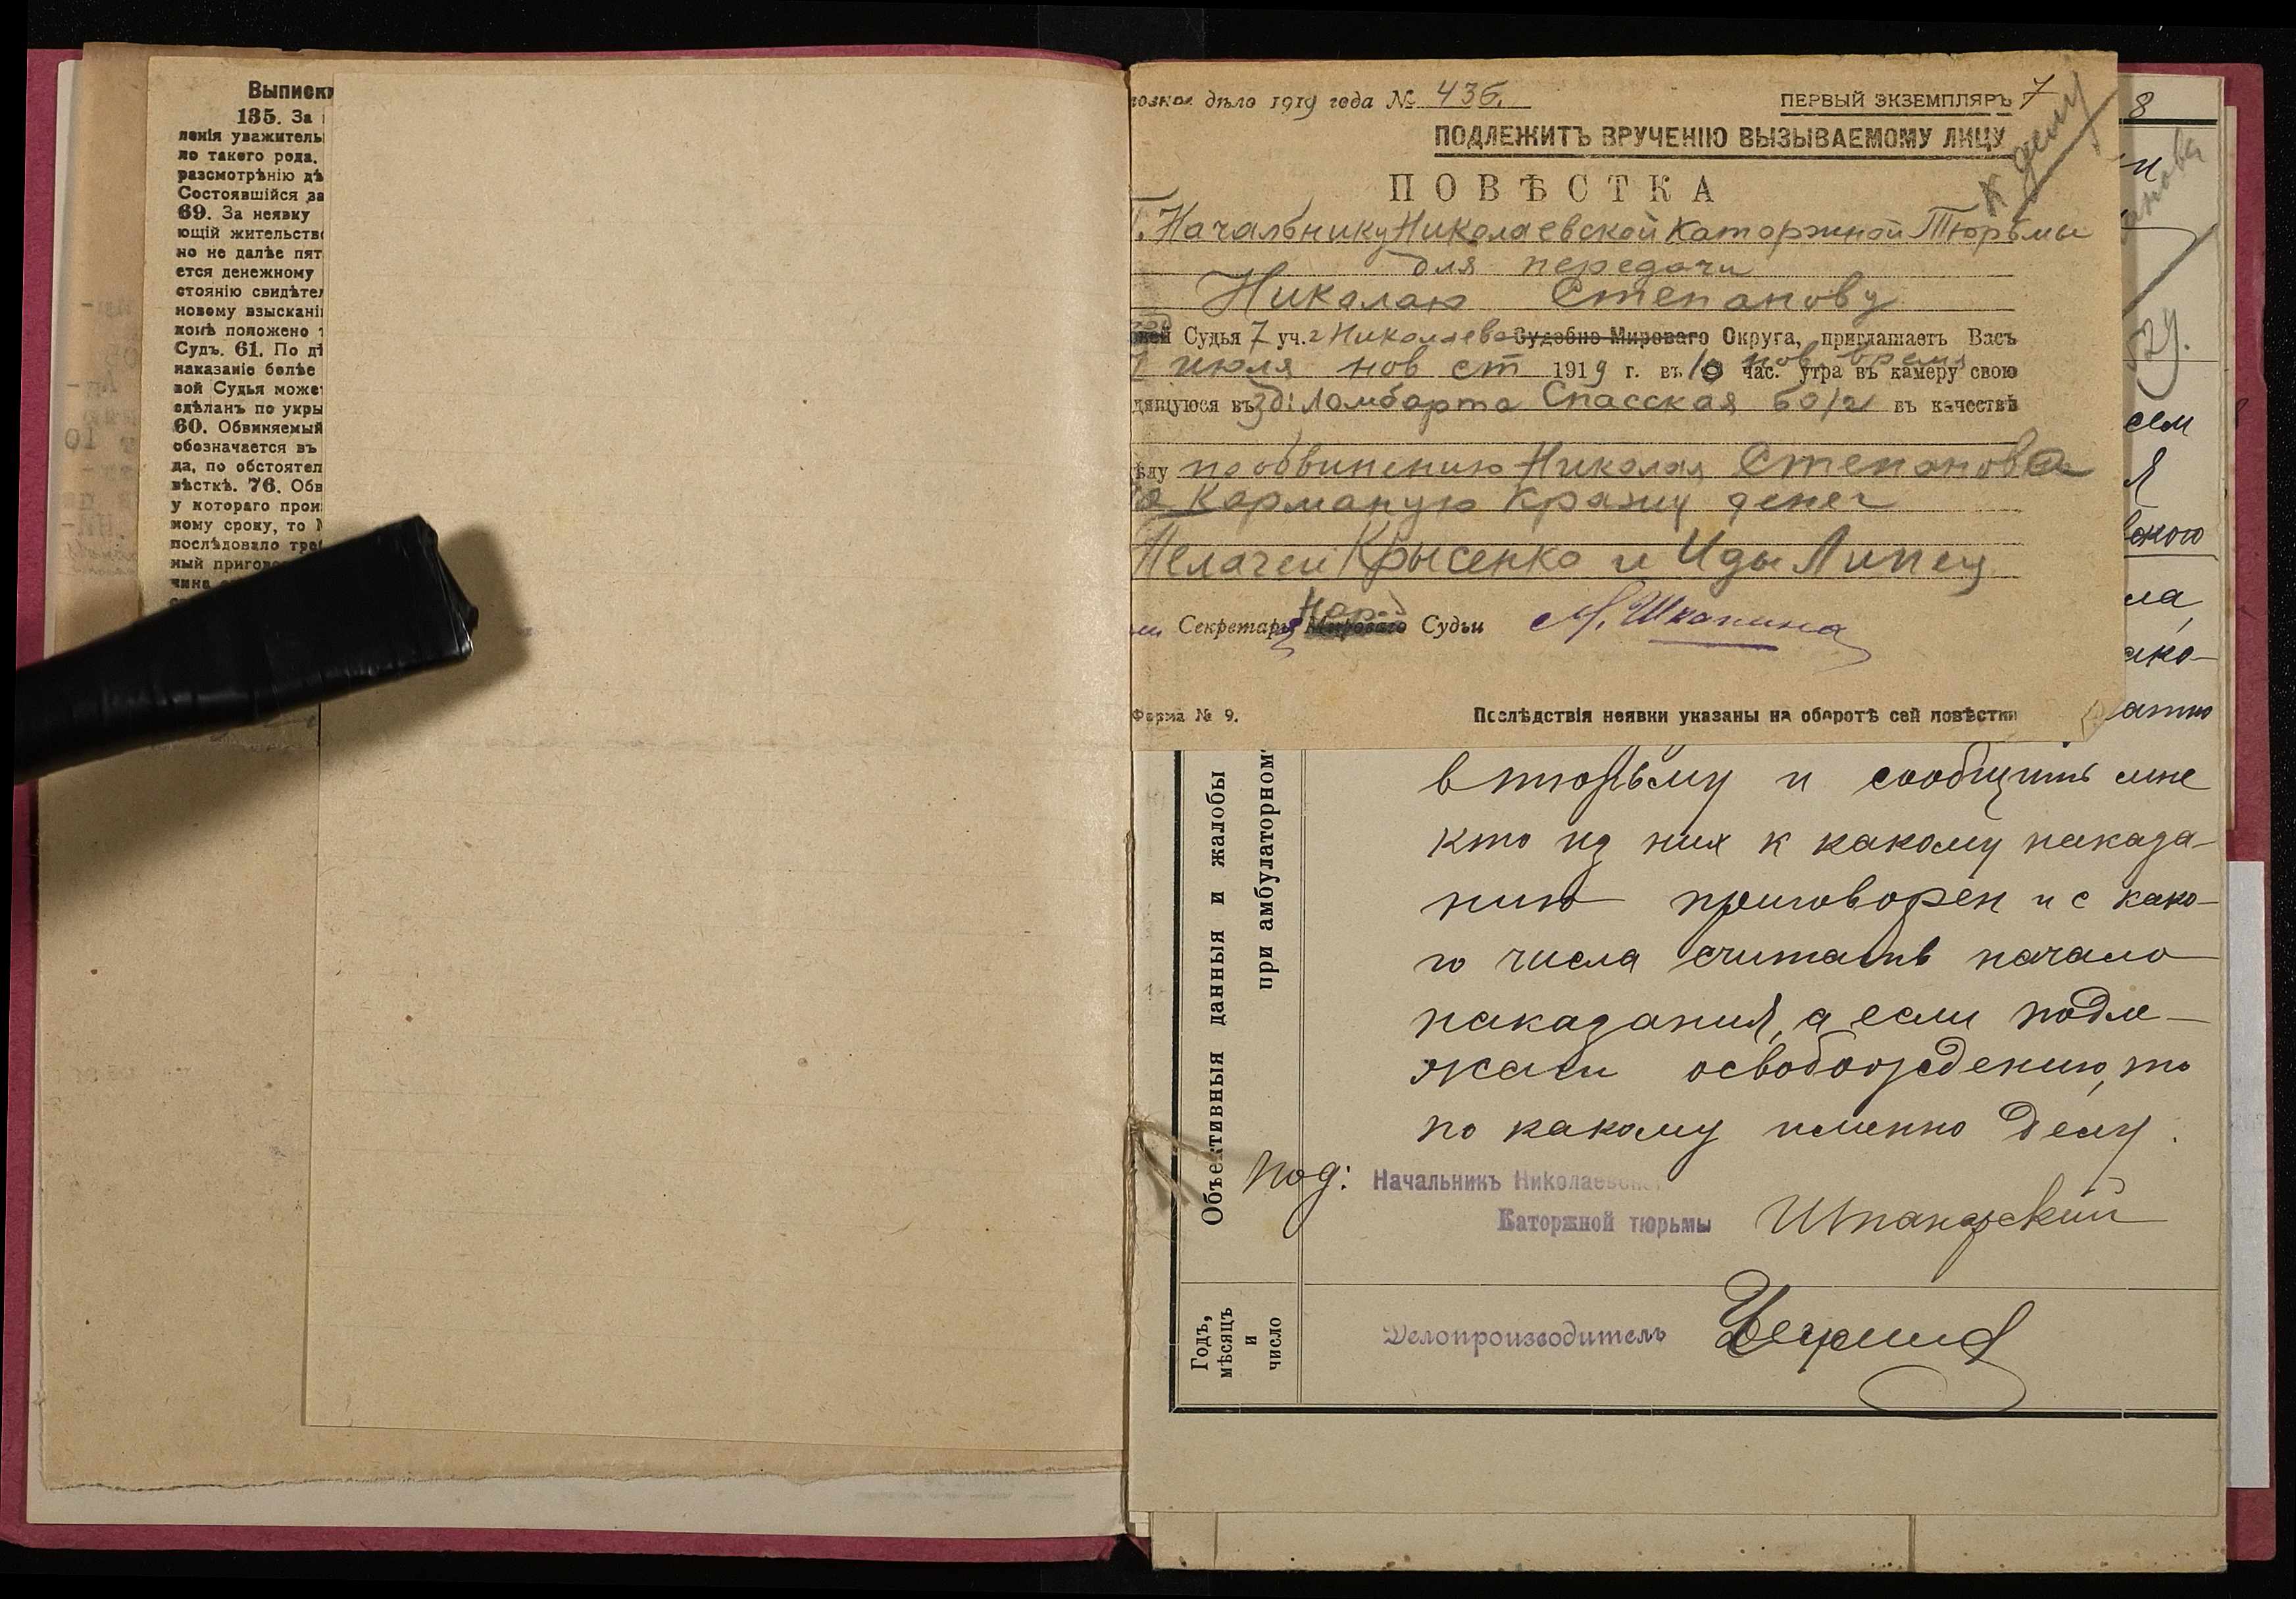 Выписки
135. За
ленія уважитель
ло такого рода.
разсмотрѣнію дѣ
Состоявшійся за
69. За неявку
ющій жительство
но не далѣе пят
ется денежному
стоянію свидѣтел
новому взысканію
конѣ положено т
Судъ. 61. По дѣ
наказаніе болѣе
вой Судья может
сдѣланъ по укры
60. Обвиняемый
обозначается въ
да, по обстоятел
вѣсткѣ. 76. Обв
у котораго прои
мому сроку, то М
послѣдовало тре
ный пригово
дѣло 1919 года № 436.
ПЕРВЫЙ ЭКЗЕМПЛЯРЪ 7
ПОДЛЕЖИТЪ ВРУЧЕНІЮ ВЫЗЫВАЕМОМУ ЛИЦУ
к делу
ПОВѢСТКА
Г. Начальнику Николаевской Каторжной Тюрьмы
для передачи
Николаю Степанову
Судья 7 уч. г Николаева Судебно-Мирового Округа, приглашаетъ Васъ
июля нов ст 1919 г. въ 10 час. нов. время утра въ камеру свою
дящуюся въ зд: Ломбарта Спасская 50/2 въ качествѣ
ѣлу по обвинению Николая Степанова
за Карманую кражу денег
Пелагеи Крысенко и Иды Липец
Секретарь Нар. Мирового Судьи М. Шкапина
Форма № 9.
Послѣдствія неявки указаны на оборотѣ сей повѣстки
8
сем
Я
ла,
ако-
атию
в тюрьму и сообщить мне
кто из них к какому наказа-
нию приговорен и с како-
го числа считать начало
наказания, а если подле-
жали освобождению, то
по какому именно делу.
под: Начальникъ Николаевской
Каторжной тюрьмы
Делопроизводитель
Объективныя данныя и жалобы
при амбулаторном
Годъ, мѣсяцъ и число